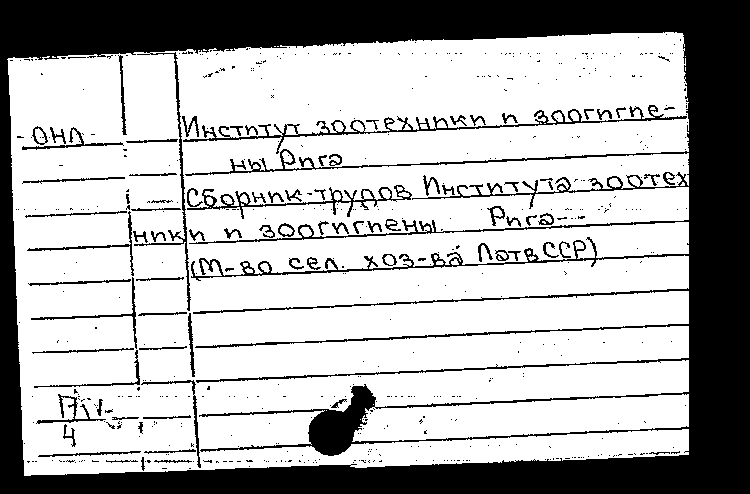 -ОНЛ- Институт зоотехники и зоогигие-
ны Рига
Сборник трудов Института зоотех
ники и зоогигиены Рига
(М-во сел. хоз-ва ЛатвССР)
4